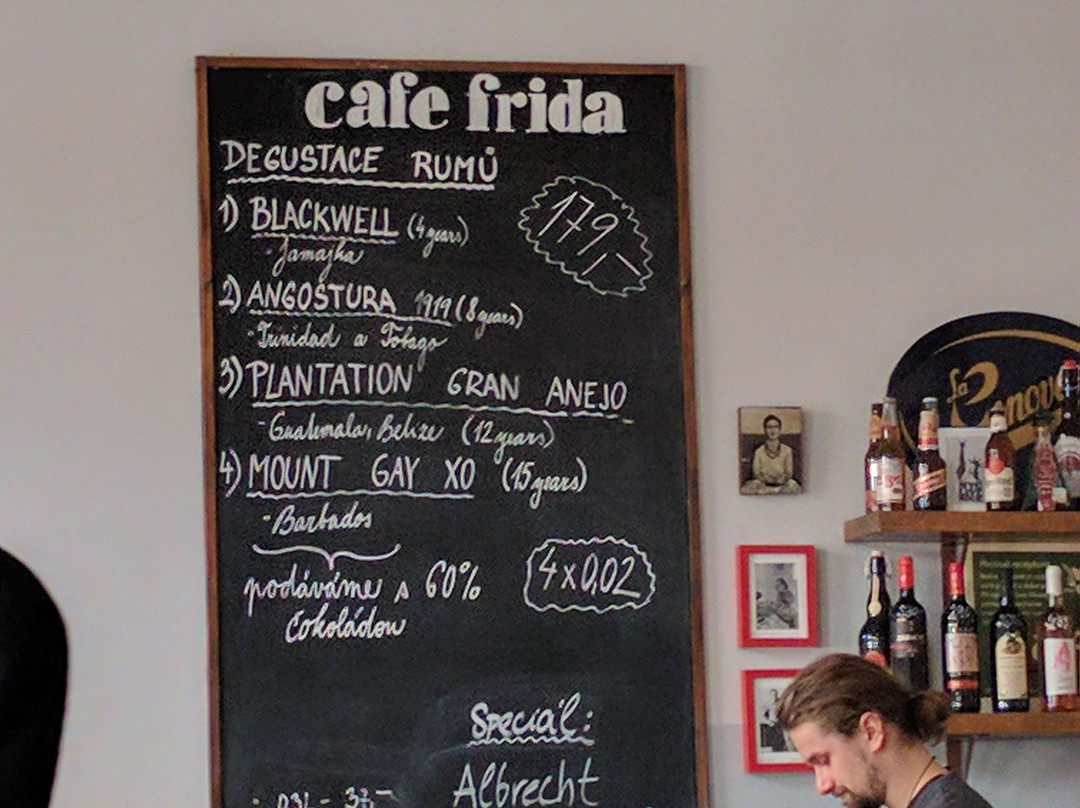 cafe frida
DEGUSTACE RUMŮ
179,-
1) BLACKWELL (4 years)
- Jamajka
2) ANGOSTURA 1919 (8 years)
- Trinidad a Tobago
3) PLANTATION GRAN ANEJO
- Guatemala, Belize (12 years)
4) MOUNT GAY XO (15 years)
- Barbados
podáváme s 60%
čokoládou
4x0,02
Speciál:
Albrecht